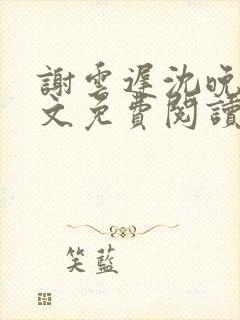 謝雲遲沈晚
文免費閱讀
笑藍